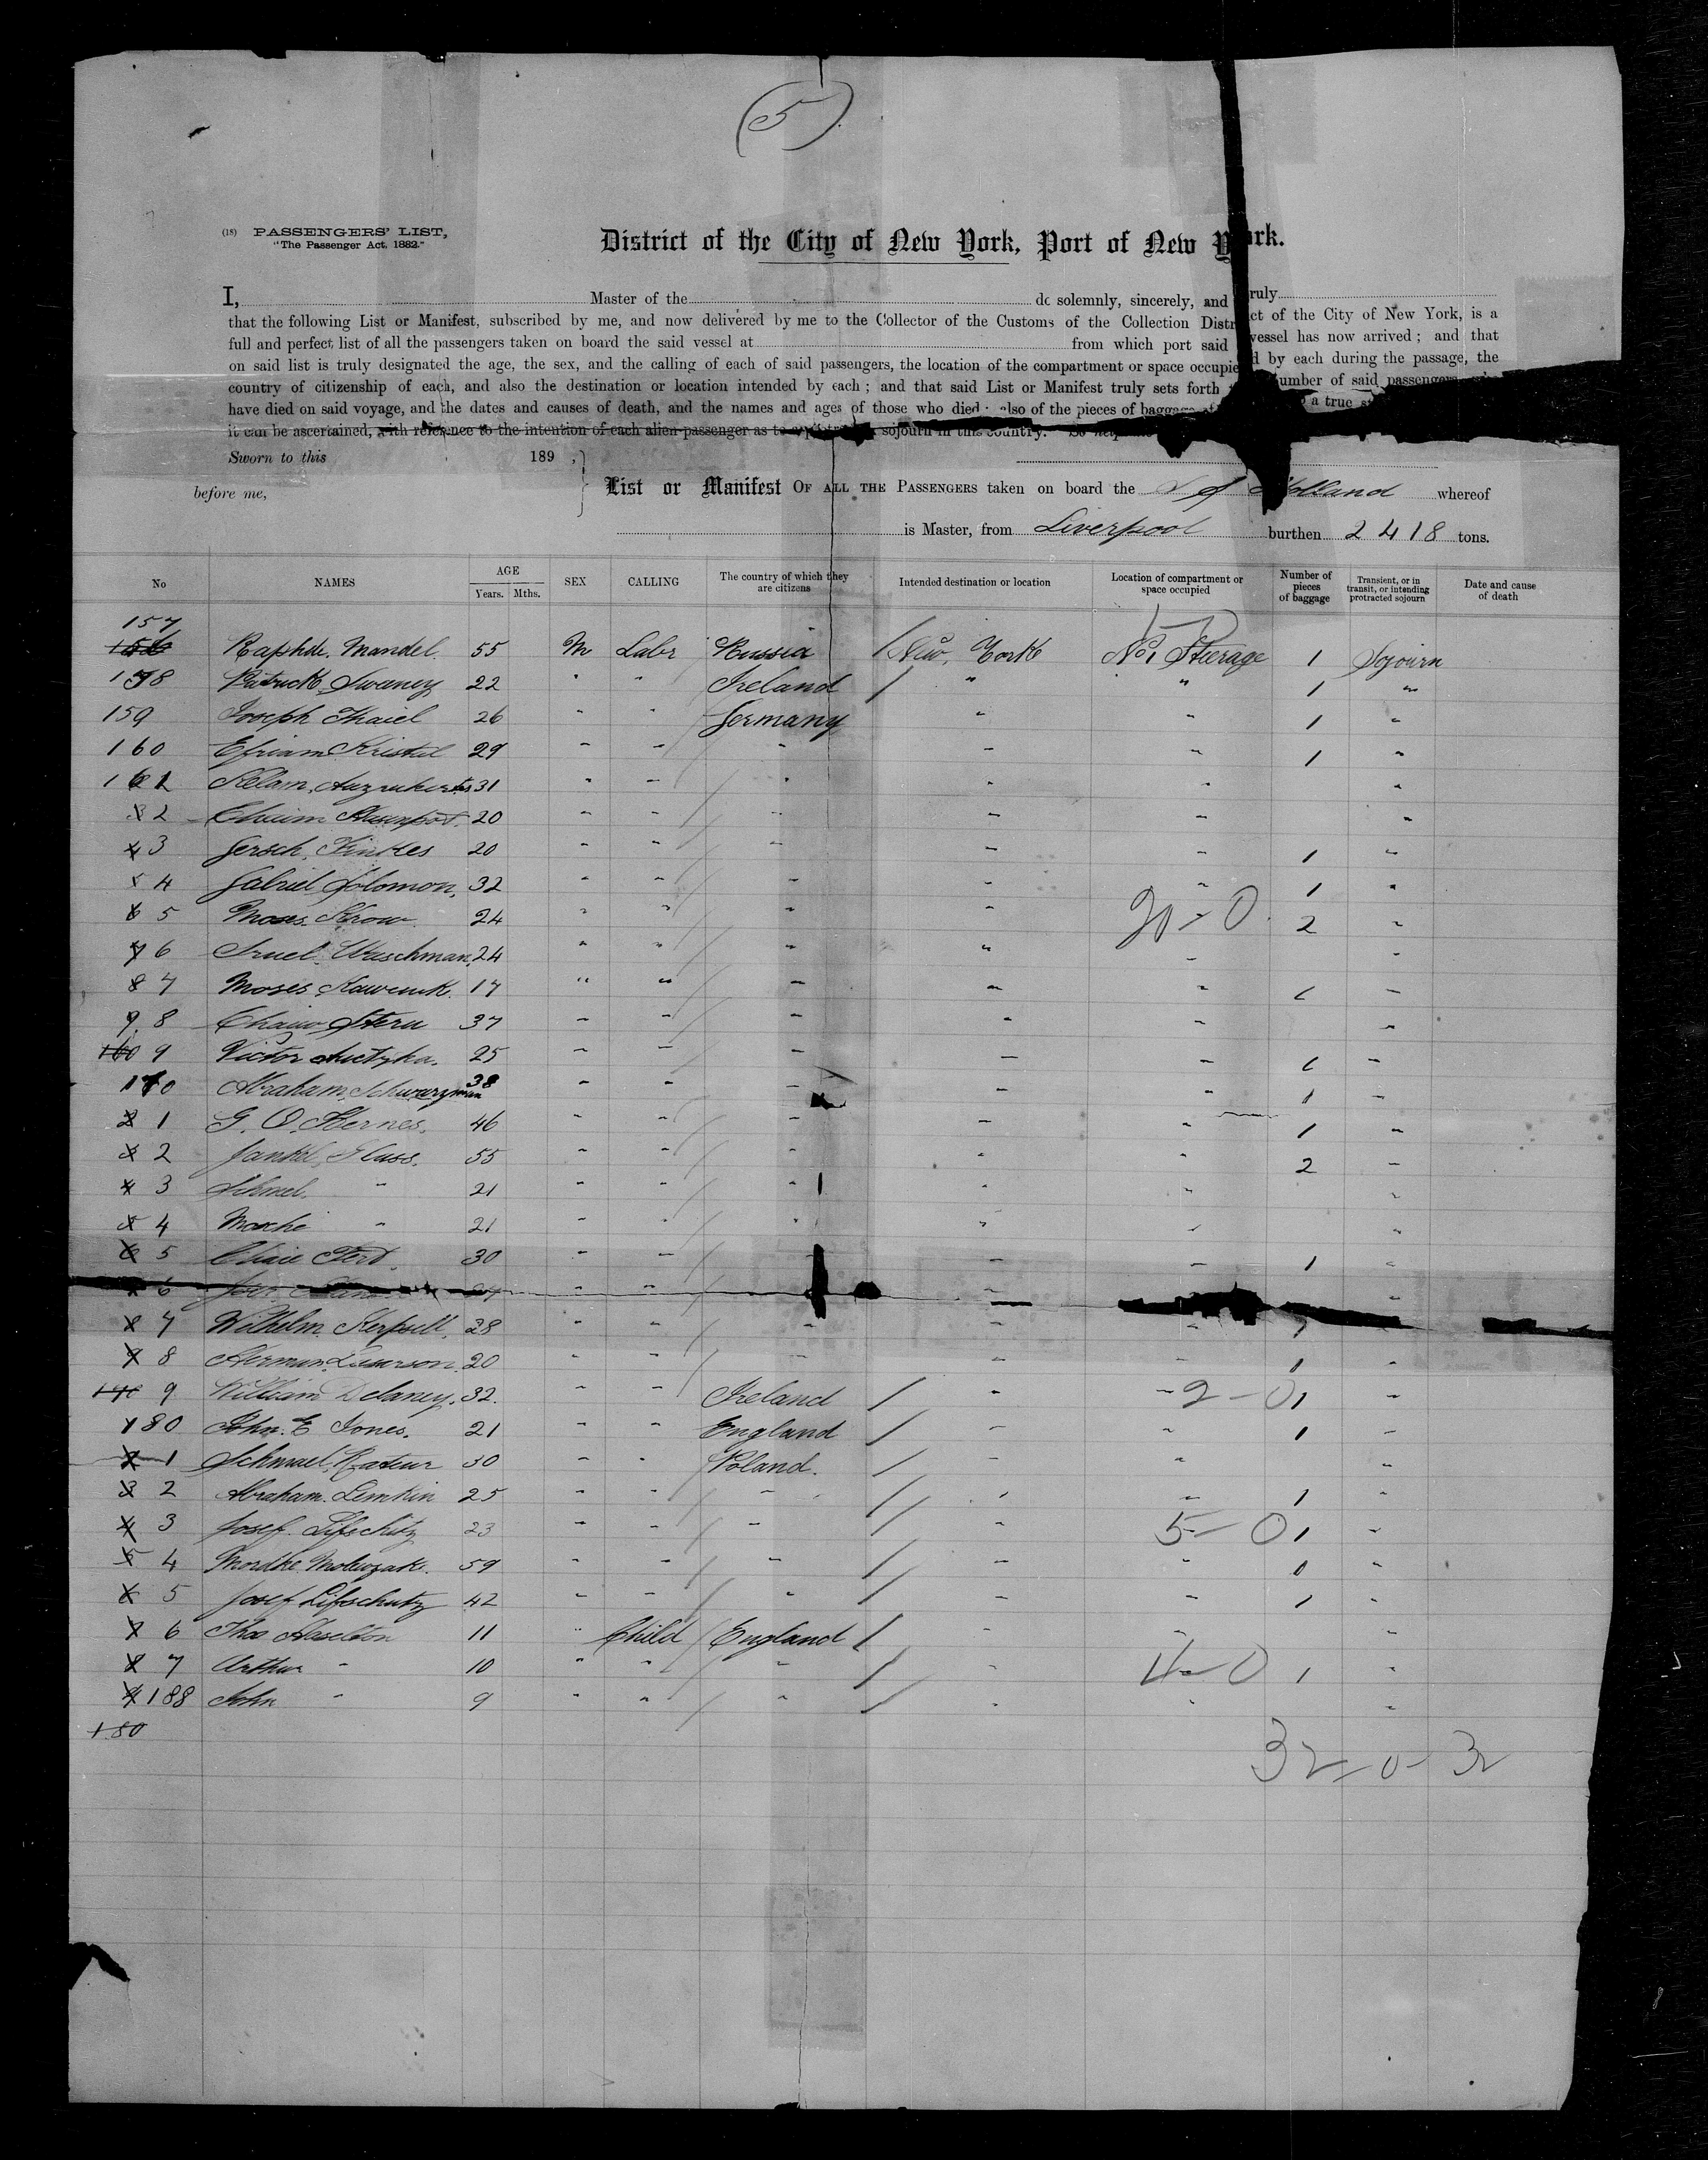 (5)
(18) PASSENGERS' LIST,
"The Passenger Act, 1882."
District of the City of New York, Port of New York.
I, Master of the do solemnly, sincerely, and truly
that the following List or Manifest, subscribed by me, and now delivered by me to the Collector of the Customs of the Collection District of the City of New York, is a
full and perfect list of all the passengers taken on board the said vessel at from which port said vessel has now arrived; and that
on said list is truly designated the age, the sex, and the calling of each of said passengers, the location of the compartment or space occupied by each during the passage, the
country of citizenship of each, and also the destination or location intended by each; and that said List or Manifest truly sets forth number of said passengers
have died on said voyage, and the dates and causes of death, and the names and ages of those who died; also of the pieces of baggage a true
it can be ascertained, with reference to the intention of each alien passenger as to sojourn in this country.
Sworn to this 189 ,
before me,
List or Manifest OF ALL THE PASSENGERS taken on board the S S Holland whereof
is Master, from Liverpool burthen 2418 tons.
No NAMES AGE Years. Mths. SEX CALLING The country of which they are citizens Intended destination or location Location of compartment or space occupied Number of pieces of baggage Transient, or in transit, or intending protracted sojourn Date and cause of death
157 Mandel. 55 M Labr Russia New York No 1 Steerage 1 Sojourn
158 Patrick Sweeney 22 " " Ireland " " 1 "
159 Joseph Thaiel 26 " " Germany " " 1 "
160 Efriam Kristal 29 " " " " " 1 "
161 31 " " " " " "
2 Chaim 20 " " " " " "
3 Gersch. 20 " " " " " 1 "
4 Gabriel Solomon. 32 " " " " " 1 "
5 Moses Krow 24 " " " " 20-0 2 "
6 Waschman. 24 " " " " " "
7 Moses 17 " " " " " 1 "
8 Stern 37 " " " " " "
9 Victor 25 " " " " " 1 "
170 Abraham Schwarzman 38 " " " " " 1 "
1 G. O. 46 " " " " " 1 "
2 Jankel Glass. 55 " " " " " 2 "
3 " 21 " " " " " "
4 Mosche " 21 " " " " " "
5 30 " " " " " 1 "
6
7 Wilhelm 28 " " " " 1 "
8 Herman 20 " " " " " 1 "
9 William Delaney. 32. " " Ireland " 2-0 1 "
180 John. E Jones. 21 " " England " " 1 "
1 Schmuel 30 " " Poland. " " "
2 Abraham. Lemkin 25 " " " " " 1 "
3 Josef. Lifschitz 23 " " " 5-0 1 "
4 Mordke 59 " " " " " 1 "
5 Josef Lifschutz 42 " " " " " 1 "
6 Thos Haselton 11 " Child England " " "
7 Arthur " 10 " " " " 4-0 1 "
188 John " 9 " " " " " "
180
32-0-32